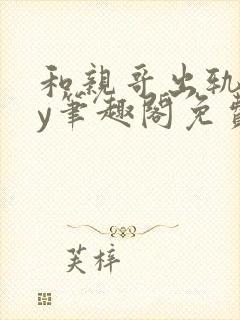 和親哥出軌
y筆趣閣免費
芙梓